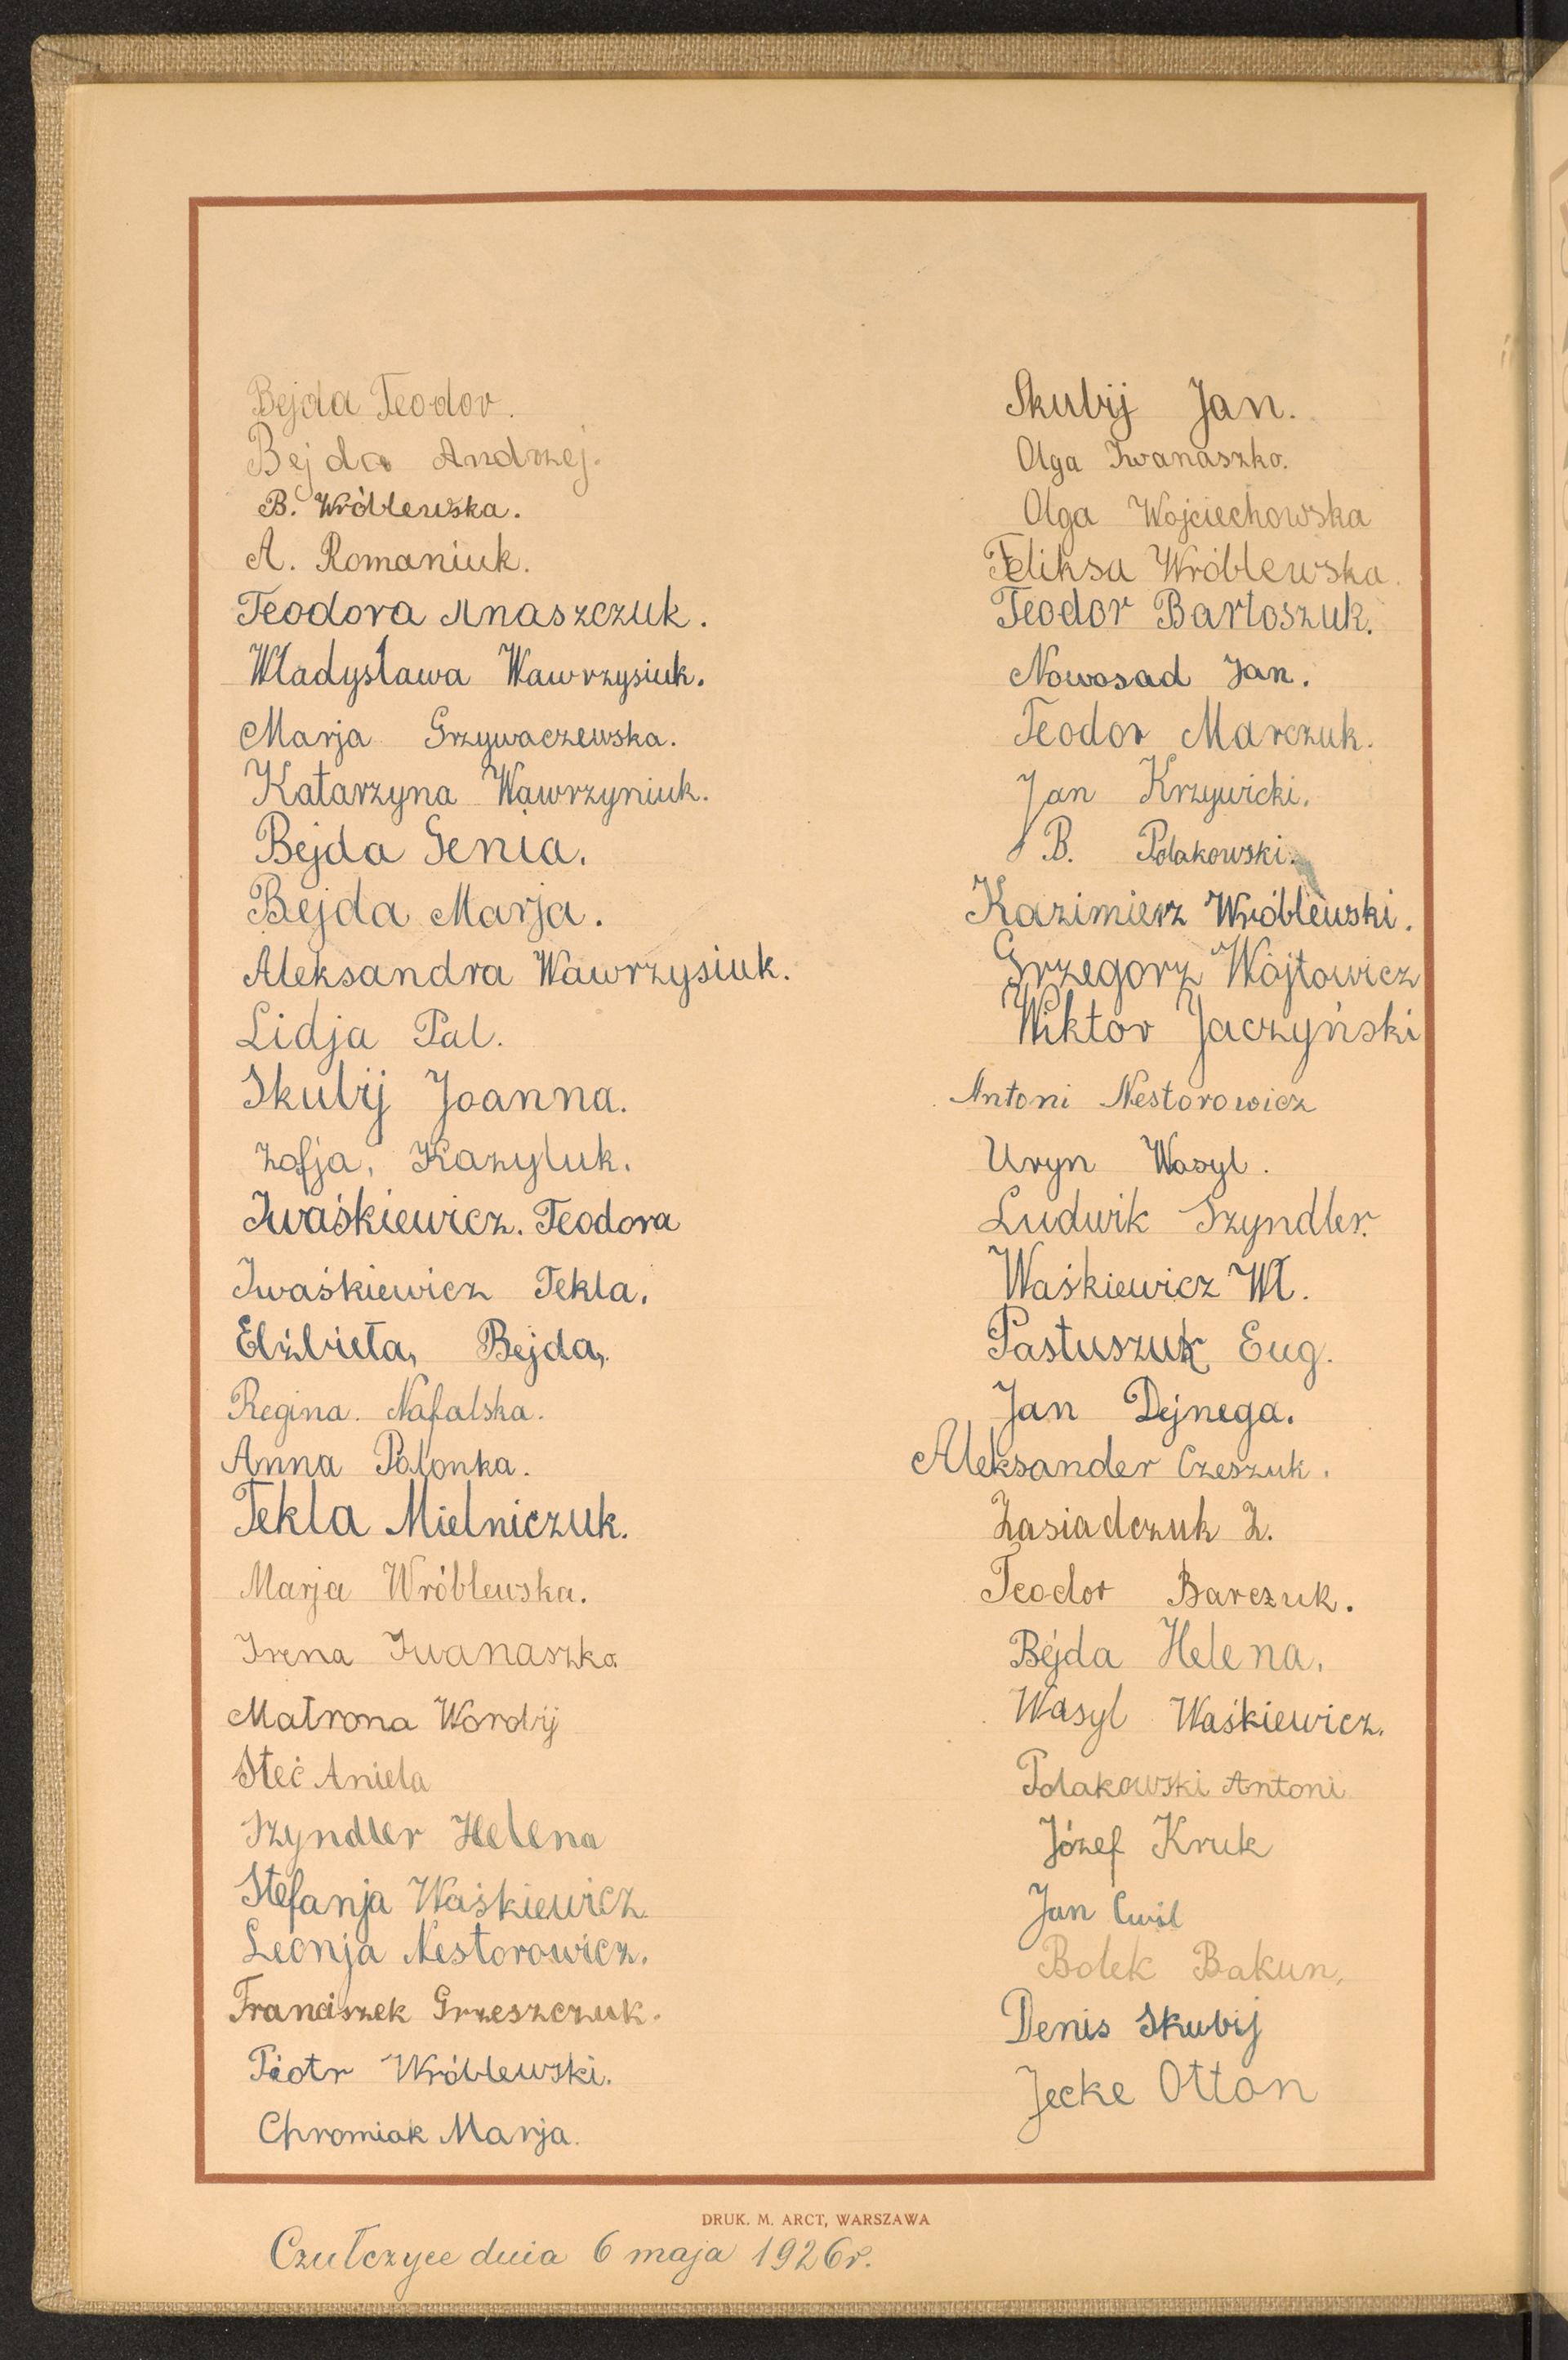 Bejda Teodor.
Bejda Andrzej.
B. Wróblewska.
A. Romaniuk.
Teodora Anaszczuk.
Władysława Wawrzysiuk.
Marja Grzywaczewska.
Katarzyna Wawrzyniuk.
Bejda Genia.
Bejda Marja.
Aleksandra Wawrzysiuk.
Lidja Pal.
Skubij Joanna.
Zofja, Kazyluk.
Iwaśkiewicz. Teodora
Iwaśkiewicz Tekla.
Elżbieta, Bejda,
Regina. Nafalska.
Anna Polonka.
Tekla Mielniczuk.
Marja Wróblewska.
Irena Iwanaszko
Matrona Worobij
Steć Aniela
Szyndler Helena
Stefanja Waśkiewicz.
Leonja Nestorowicz.
Franciszek Grzeszczuk.
Piotr Wróblewski.
Chromiak Marja.
Skubij Jan.
Olga Iwanaszko.
Olga Wojciechowska
Feliksa Wróblewska.
Teodor Bartoszuk.
Nowosad Jan.
Teodor Marczuk.
Jan Krzywicki.
B. Polakowski.
Kazimierz Wróblewski.
Grzegorz Wójtowicz
Wiktor Jaczyński
Antoni Nestorowicz
Uryn Wasyl.
Ludwik Szyndler.
Waśkiewicz Wł.
Pastuszuk Eug.
Jan Dejnega.
Aleksander Czeszuk.
Zasiadczuk Z.
Teodor Barczuk.
Bejda Helena.
Wasyl Waśkiewicz.
Polakowski Antoni
Józef Kruk
Jan Ćwil
Bolek Bakun,
Denis Skubij
Jecke Otton
DRUK. M. ARCT, WARSZAWA
Czułczyce dnia 6 maja 1926r.